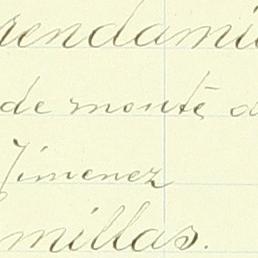 rendami
de monte d
Jimenez
millas.